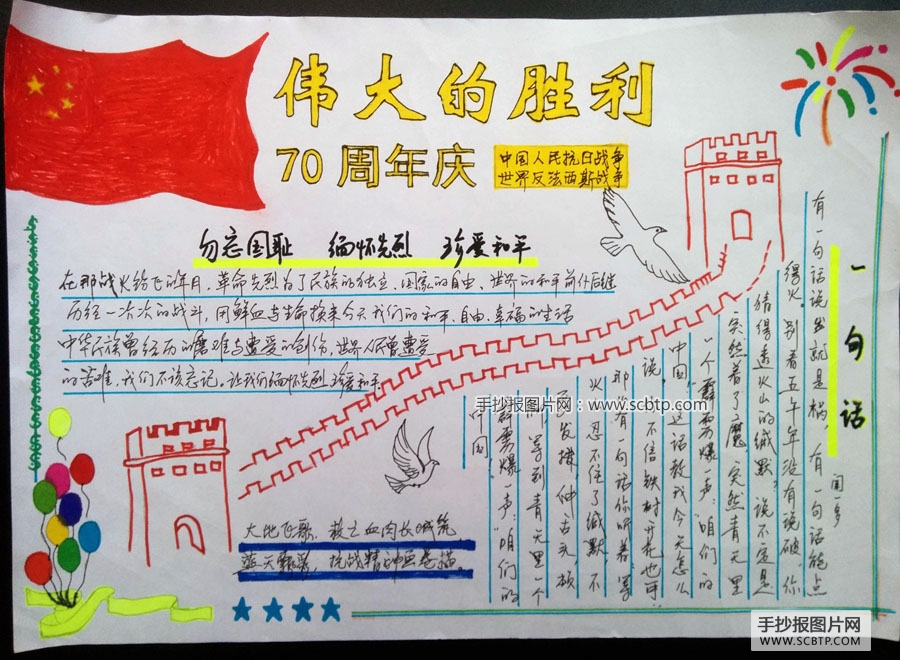 伟大的胜利
70周年庆
中国人民抗日战争
世界反法西斯战争
勿忘国耻 缅怀先烈 珍爱和平
在那战火纷飞的年月，革命先烈为了民族的独立、国家的自由、世界的和平前仆后继
历经一次次的战斗，用鲜血与生命换来今天我们的和平、自由、幸福的生活
中华民族曾经历的磨难与遭受的创伤，世界人民曾遭受
的苦难，我们不该忘记。让我们缅怀先烈 珍爱和平
一句话
闻一多
有一句话说出就是祸，有一句话能点
得火。别看五千年没有说破，你
猜得透火山的缄默？说不定是
突然着了魔，突然青天里
一个霹雳爆一声：咱们的
中国，这话教我今天怎么
说，不信铁树开花也可
那么有一句话你听着：等
火忍不住了缄默，不
要发抖，伸舌头，顿
脚，等到青天里一个
霹雳爆一声：咱们的
中国
大地飞歌，
血肉长城筑
蓝天
抗战精神
手抄报图片网：www.scbtp.com
手抄报图片网
WWW.SCBTP.COM